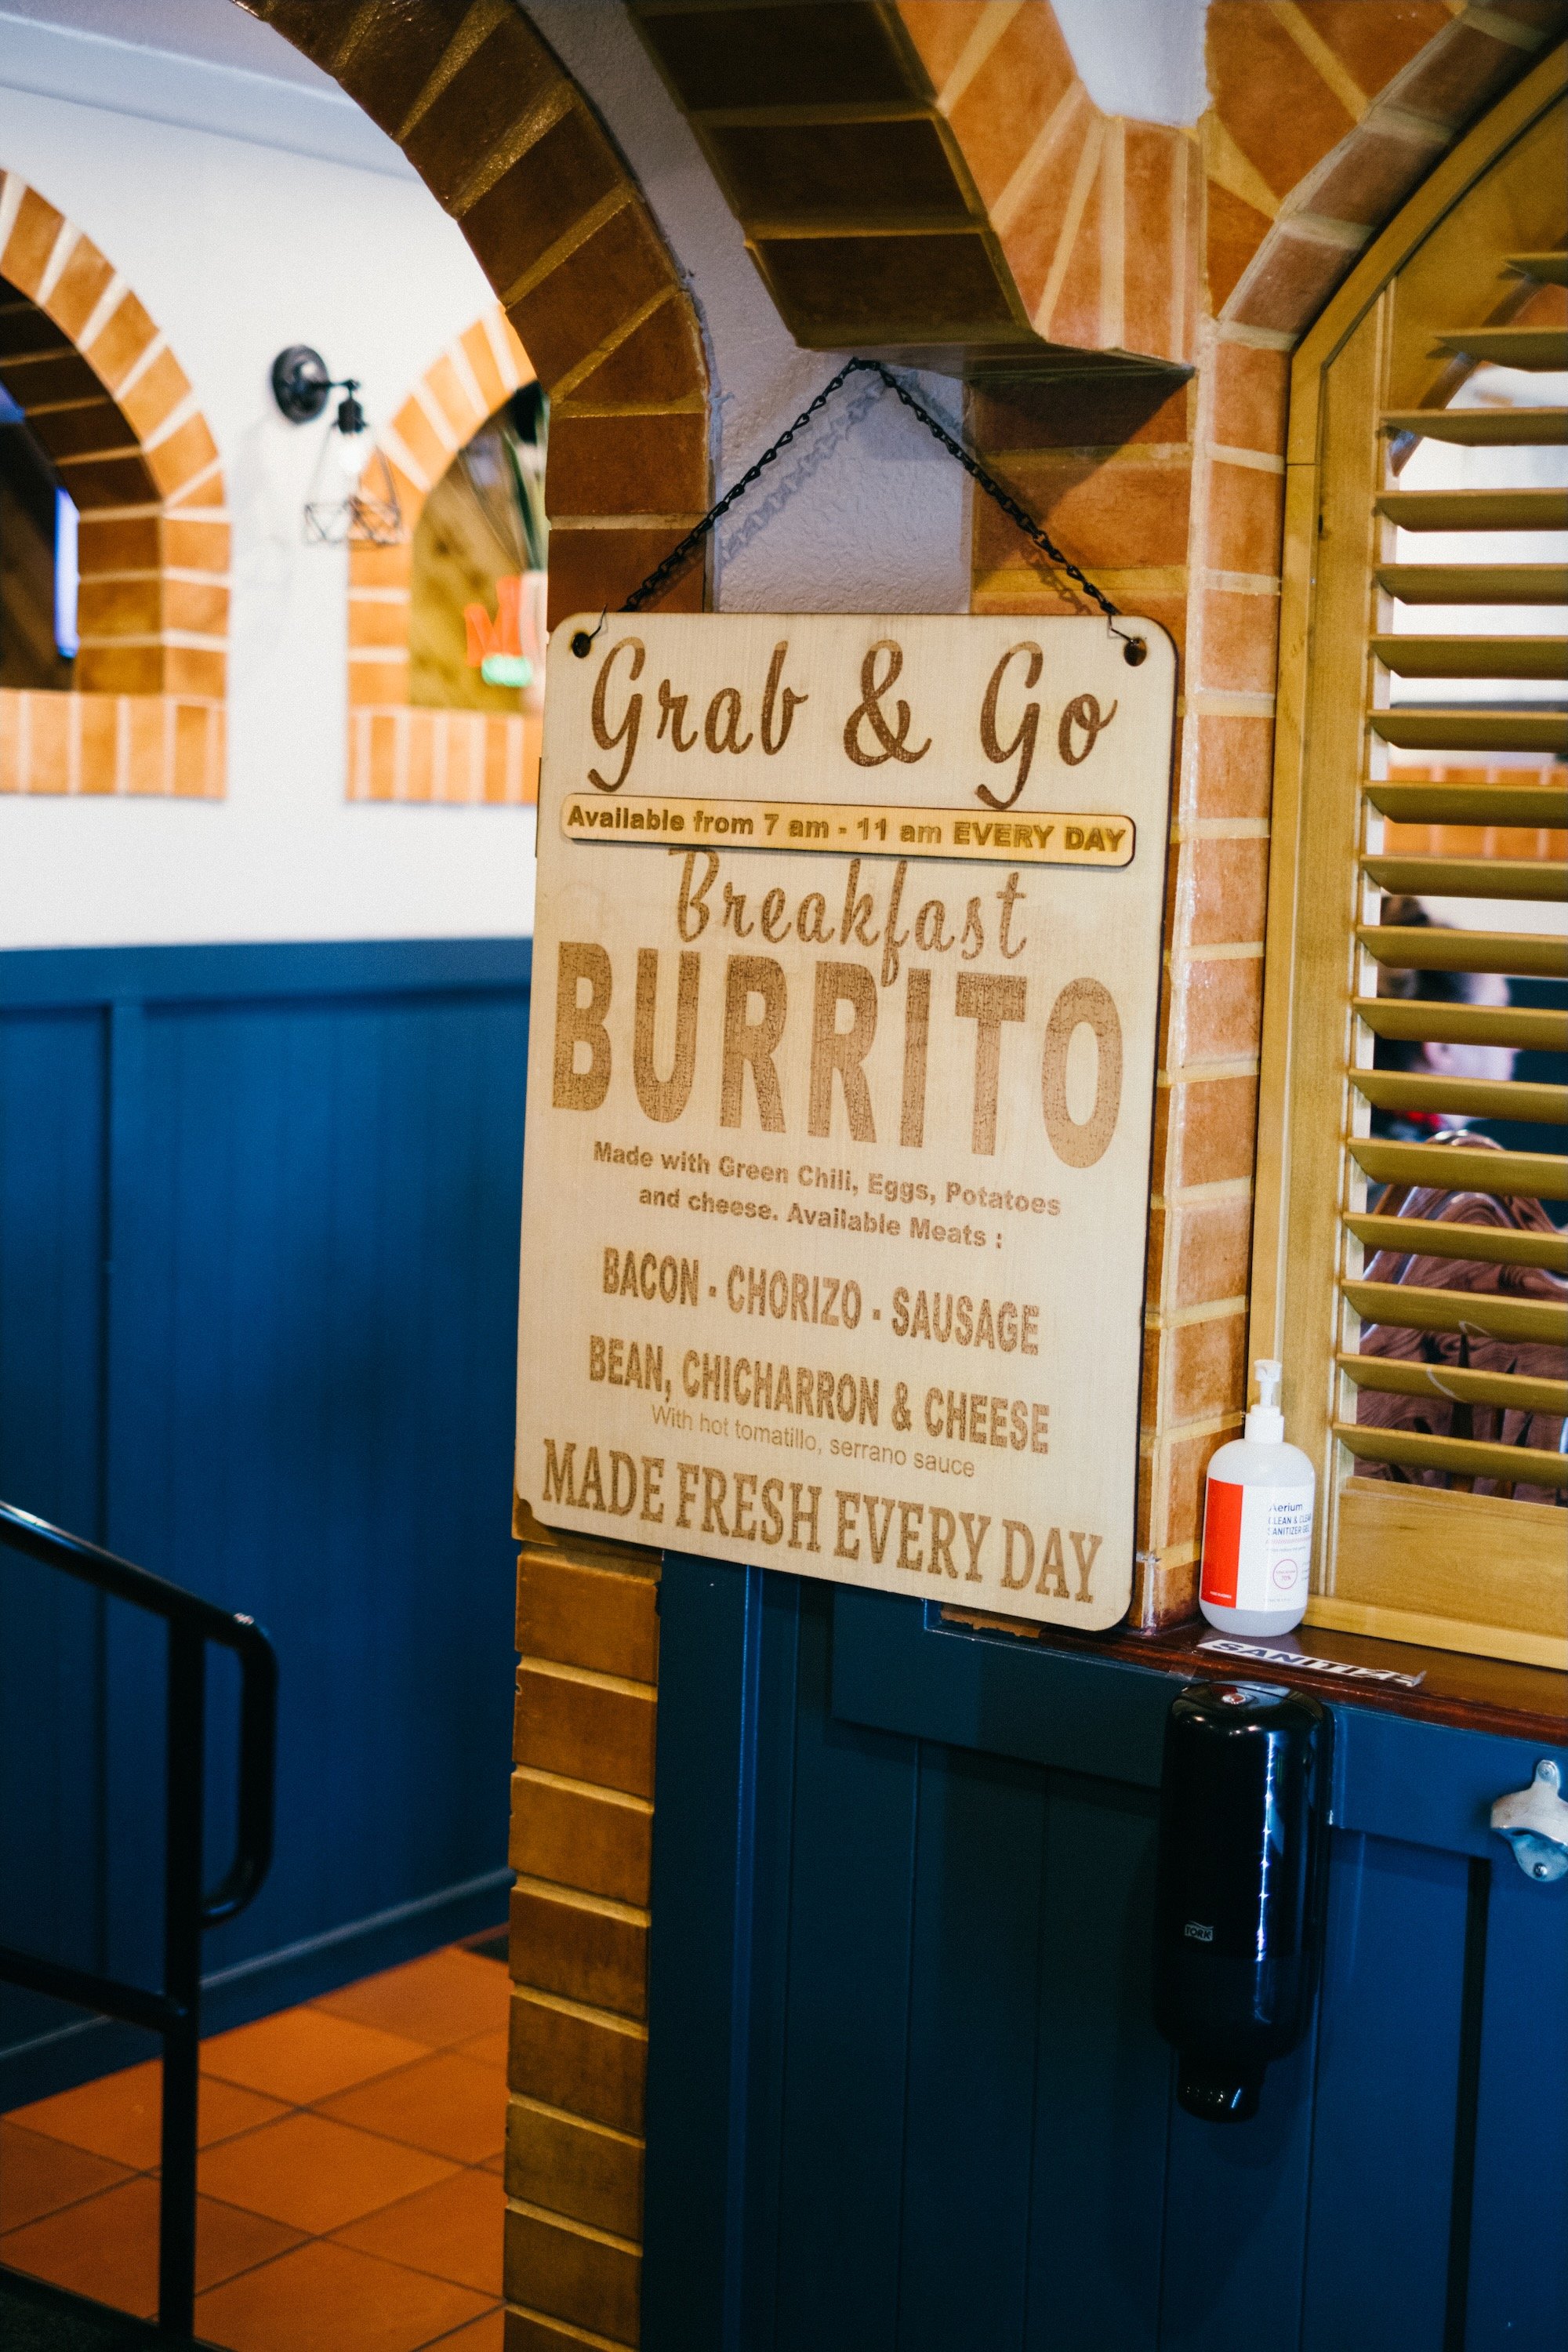 Grab & Go
Available from 7 am - 11 am EVERY DAY
Breakfast
BURRITO
Made with Green Chili, Eggs, Potatoes
and cheese. Available Meats :
BACON - CHORIZO - SAUSAGE
BEAN, CHICHARRON & CHEESE
With hot tomatillo, serrano sauce
MADE FRESH EVERY DAY
Aerium
CLEAN & CLEAR
SANITIZER GEL
SANITIZE
TORK